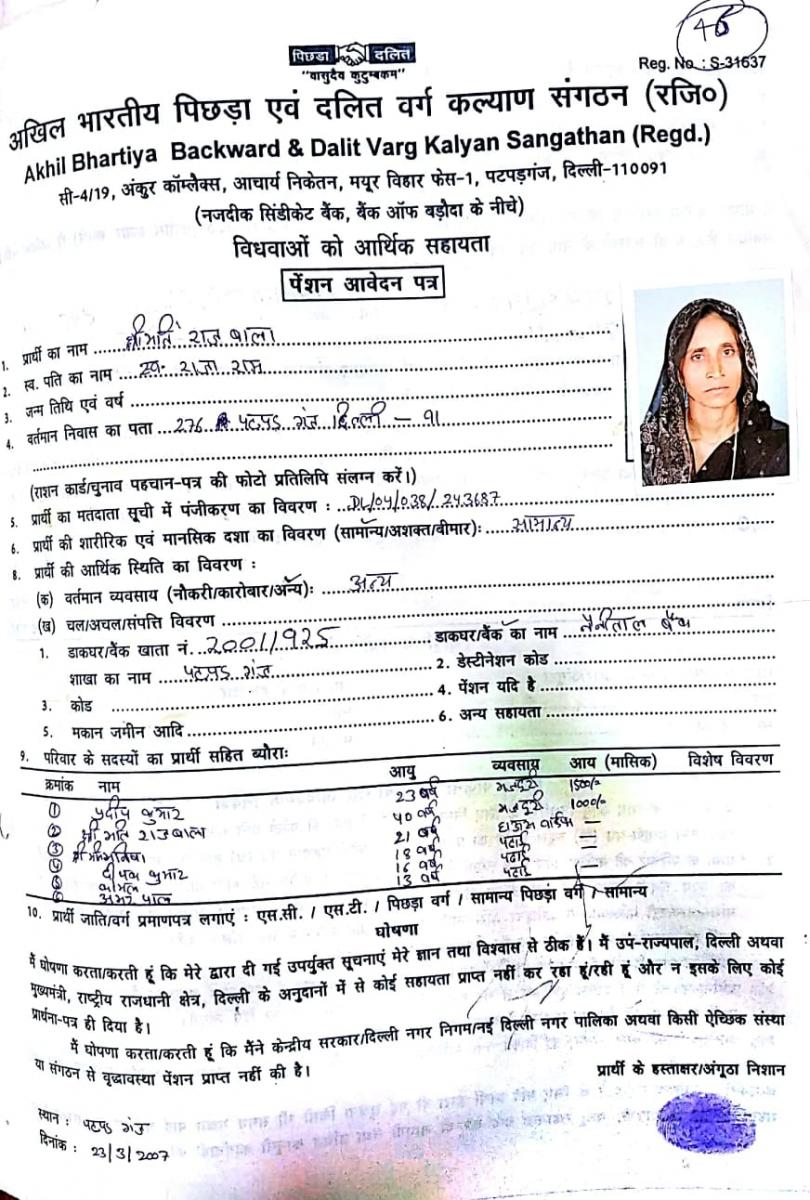 पिछड़ा दलित
"वासुदेव कुटुम्बकम"
Reg. No. : S-31637
अखिल भारतीय पिछड़ा एवं दलित वर्ग कल्याण संगठन (रजि०)
Akhil Bhartiya Backward & Dalit Varg Kalyan Sangathan (Regd.)
सी-4/19, अंकुर कॉम्लैक्स, आचार्य निकेतन, मयूर विहार फेस-1, पटपड़गंज, दिल्ली-110091
(नजदीक सिंडीकेट बैंक, बैंक ऑफ बड़ौदा के नीचे)
विधवाओं को आर्थिक सहायता
पेंशन आवेदन पत्र
1. प्रार्थी का नाम श्रीमति राज बाला
2. स्व. पति का नाम स्व. राजा राम
3. जन्म तिथि एवं वर्ष
4. वर्तमान निवास का पता 276 पटपड़ गंज दिल्ली - 91
(राशन कार्ड/चुनाव पहचान-पत्र की फोटो प्रतिलिपि संलग्न करें।)
5. प्रार्थी का मतदाता सूची में पंजीकरण का विवरण : DL/04/038/243687
6. प्रार्थी की शारीरिक एवं मानसिक दशा का विवरण (सामॉन्य/अशक्त/बीमार): सामान्य
8. प्रार्थी की आर्थिक स्थिति का विवरण :
(क) वर्तमान व्यवसाय (नौकरी/कारोबार/अन्य): अन्य
(ख) चल/अचल/संपत्ति विवरण
1. डाकघर/बैंक खाता नं. 2001/925 डाकघर/बैंक का नाम नैनीताल बैंक
शाखा का नाम पटपड़ गंज 2. डेस्टीनेशन कोड
3. कोड 4. पेंशन यदि है
5. मकान जमीन आदि 6. अन्य सहायता
9. परिवार के सदस्यों का प्रार्थी सहित ब्यौराः
क्रमांक नाम आयु व्यवसाय आय (मासिक) विशेष विवरण
1 प्रदीप कुमार 23 वर्ष मजदूरी 1500/-
2 श्री मति राजबाला 40 वर्ष मजदूरी 1000/-
3 21 वर्ष —
4 दीपक कुमार 18 वर्ष पढाई —
5 कोमल 16 वर्ष पढाई —
6 अमर पाल 13 वर्ष पढाई —
10. प्रार्थी जाति/वर्ग प्रमाणपत्र लगाएं : एस.सी. / एस.टी. / पिछड़ा वर्ग / सामान्य पिछड़ा वर्ग / सामान्य
घोषणा
मैं घोषणा करता/करती हूं कि मेरे द्वारा दी गई उपर्युक्त सूचनाएं मेरे ज्ञान तथा विश्वास से ठीक हैं। मैं उप-राज्यपाल, दिल्ली अथवा
मुख्यमंत्री, राष्ट्रीय राजधानी क्षेत्र, दिल्ली के अनुदानों में से कोई सहायता प्राप्त नहीं कर रहा हूं/रही हूं और न इसके लिए कोई
प्रार्थना-पत्र ही दिया है।
मैं घोषणा करता/करती हूं कि मैंने केन्द्रीय सरकार/दिल्ली नगर निगम/नई दिल्ली नगर पालिका अथवा किसी ऐच्छिक संस्था
या संगठन से वृद्धावस्था पेंशन प्राप्त नहीं की है।
प्रार्थी के हस्ताक्षर/अंगूठा निशान
स्थान : पटपड़ गंज
दिनांक : 23/3/2007